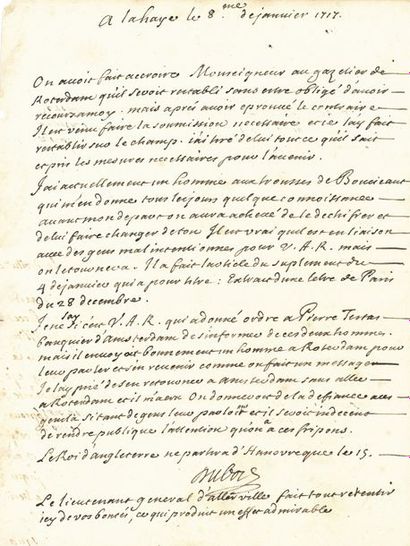 A la haye le 8.me de janvier 1717.
On avoit fait accroire Monseigneur au gazetier de
Roterdam qu'il seroit retabli sans estre obligé d'avoir
recours a moy; mais après avoir eprouvé le contraire
Il est venu faire la soumission necessaire et je l'ay fait
retablir sur le champ. j'ai tiré de lui tout ce qu'il sait
et pris les mesures necessaires pour l'avenir.
J'ai actuellement un homme aux trousses de
qui m'en donne tous les jours quelque connoissance
avant mon depart on aura achevé de le dechifrer et
de lui faire changer de ton Il est vrai qu'il est en liaison
avec des gens mal intentionnés pour V.A.R. mais
on le tournera. Il a fait l'article du suplement du
4 de janvier qui a pour titre: Extrait d'une letre de Paris
du 28 decembre.
Je ne sai si c'est V.A.R. qui a donné ordre a Pierre
banquier d'Amsterdam de s'informer de ces deux hommes.
mais il envoyoit bonnement un homme a Roterdam pour
leur parler et en revenir comme on fait un message
Je l'ay prié de s'en retourner a Amsterdam sans aller
a Roterdam et il m'a cru On donneroit de la defiance aux
gens la si tant de gens leur parloient et il seroit indecent
de rendre publique l'attention qu'on a a ces fripons.
Le Roi d'angleterre ne partira d'Hanovre que le 15.
Dubois
Le lieutenant general d'allerville fait tout retentir
icy de vos bontés, ce qui produit un effet admirable